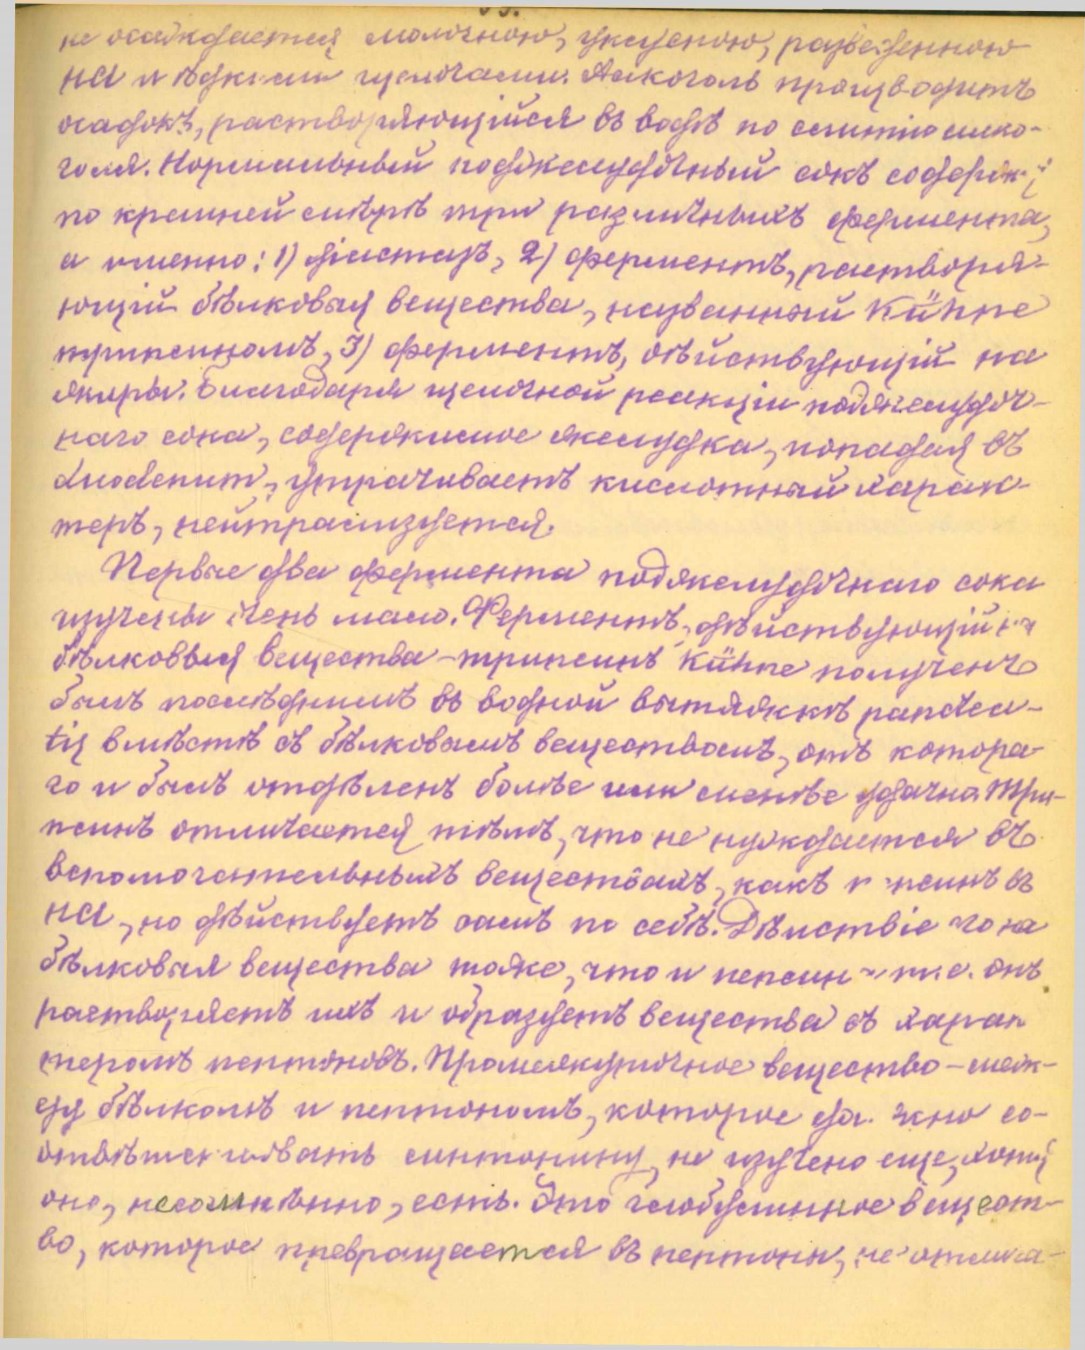 не осаждается молочною, уксусною, разведенною
HCl и ѣдкими щелочами. Алкоголь производитъ
осадокъ, растворяющійся въ водѣ по слитію алко-
голя. Нормальный поджелудочный сокъ содерж
по крайней мѣрѣ три различныхъ фермента,
а именно: 1) діастазъ, 2) ферментъ, растворя-
ющій бѣлковыя вещества, названный Kühne
трипсиномъ, 3) ферментъ, дѣйствующій на
жиры. Благодаря щелочной реакціи поджелудоч-
наго сока, содержимое желудка, попадая въ
duodenum, утрачиваетъ кислотный харак-
теръ, нейтрализуется.
Первые два фермента поджелудочнаго сока
изучены очень мало. Ферментъ, дѣйствующій на
бѣлковыя вещества – трипсинъ Kühne полученъ
былъ послѣднимъ въ водной вытяжкѣ pancrea-
tis вмѣстѣ съ бѣлковымъ веществомъ, отъ котора-
го и былъ отдѣленъ болѣе или менѣе удачно. Три-
псинъ отличается тѣмъ, что не нуждается въ
вспомогательныхъ веществахъ, какъ пепсинъ въ
HCl, но дѣйствуетъ самъ по себѣ. Дѣйствіе его на
бѣлковыя вещества тоже, что и пепсина, т.е. онъ
растворяетъ ихъ и образуетъ вещества съ харак
теромъ пептоновъ. Промежуточное вещество – меж-
ду бѣлкомъ и пептономъ, которое должно со-
отвѣтствовать синтонину, не изучено еще, хотя
оно, несомнѣнно, есть. Это глобулинное вещест-
во, которое превращается въ пептоны, не отлича-